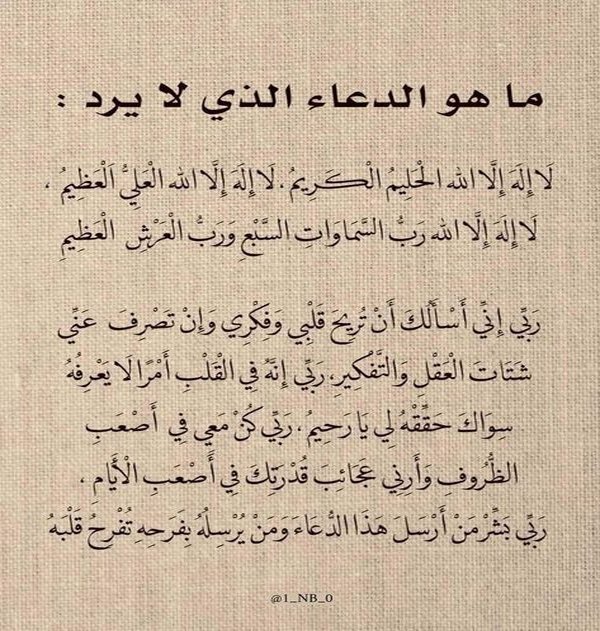 ما هو الدعاء الذي لا يرد :
لَا إِلَهَ إِلَّا الله الْحَلِيمُ الْكَرِيمُ، لَا إِلَهَ إِلَّا الله الْعَلِيُّ الْعَظِيمُ ،
لَا إِلَهَ إِلَّا الله رَبُّ السَّمَاوَاتِ السَّبْعِ وَرَبُّ الْعَرْشِ الْعَظِيمِ
رَبِّي إِنِّي أَسْأَلُكَ أَنْ تُرِيحَ قَلْبِي وَفِكْرِي وَإِنْ تَصْرِفَ عَنِّي
شَتَاتَ الْعَقْلِ وَالتَّفْكِيرِ، رَبِّي إِنَّهُ فِي الْقَلْبِ أَمْرًا لَا يَعْرِفُهُ
سِوَاكَ حَقِّقْهُ لِي يَا رَحِيمُ، رَبِّي كُنْ مَعِي فِي أَصْعَبِ
الظُّرُوفِ وَأَرِنِي عَجَائِبَ قُدْرَتِكَ فِي أَصْعَبِ الْأَيَّامِ ،
رَبِّي بَشِّرْ مَنْ أَرْسَلَ هَذَا الدُّعَاءَ وَمَنْ يُرْسِلُهُ بِفَرَحِهِ تُفْرِحُ قَلْبَهُ
@1_NB_0